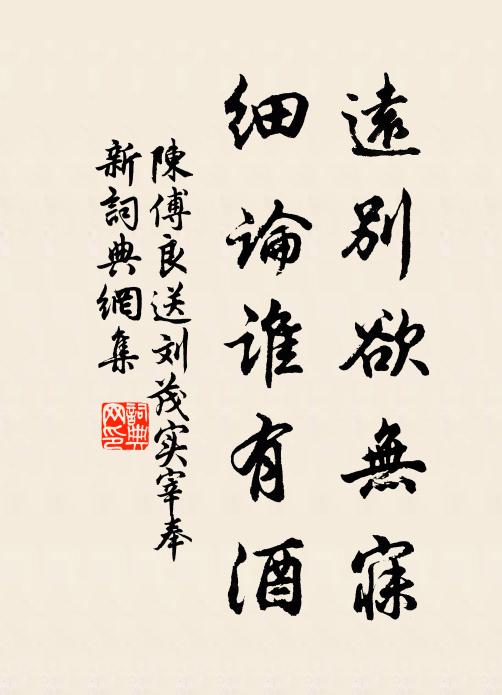 遠别欲無寐
细論誰有酒
陳傅良送刘茂实宰奉
新詞典網集
詞典
网印